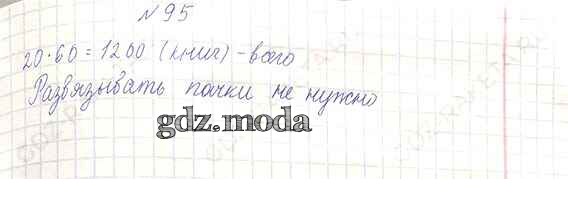 № 95
20·60 = 1200 (книг) - всего
Развязывать пачки не нужно
gdz.moda